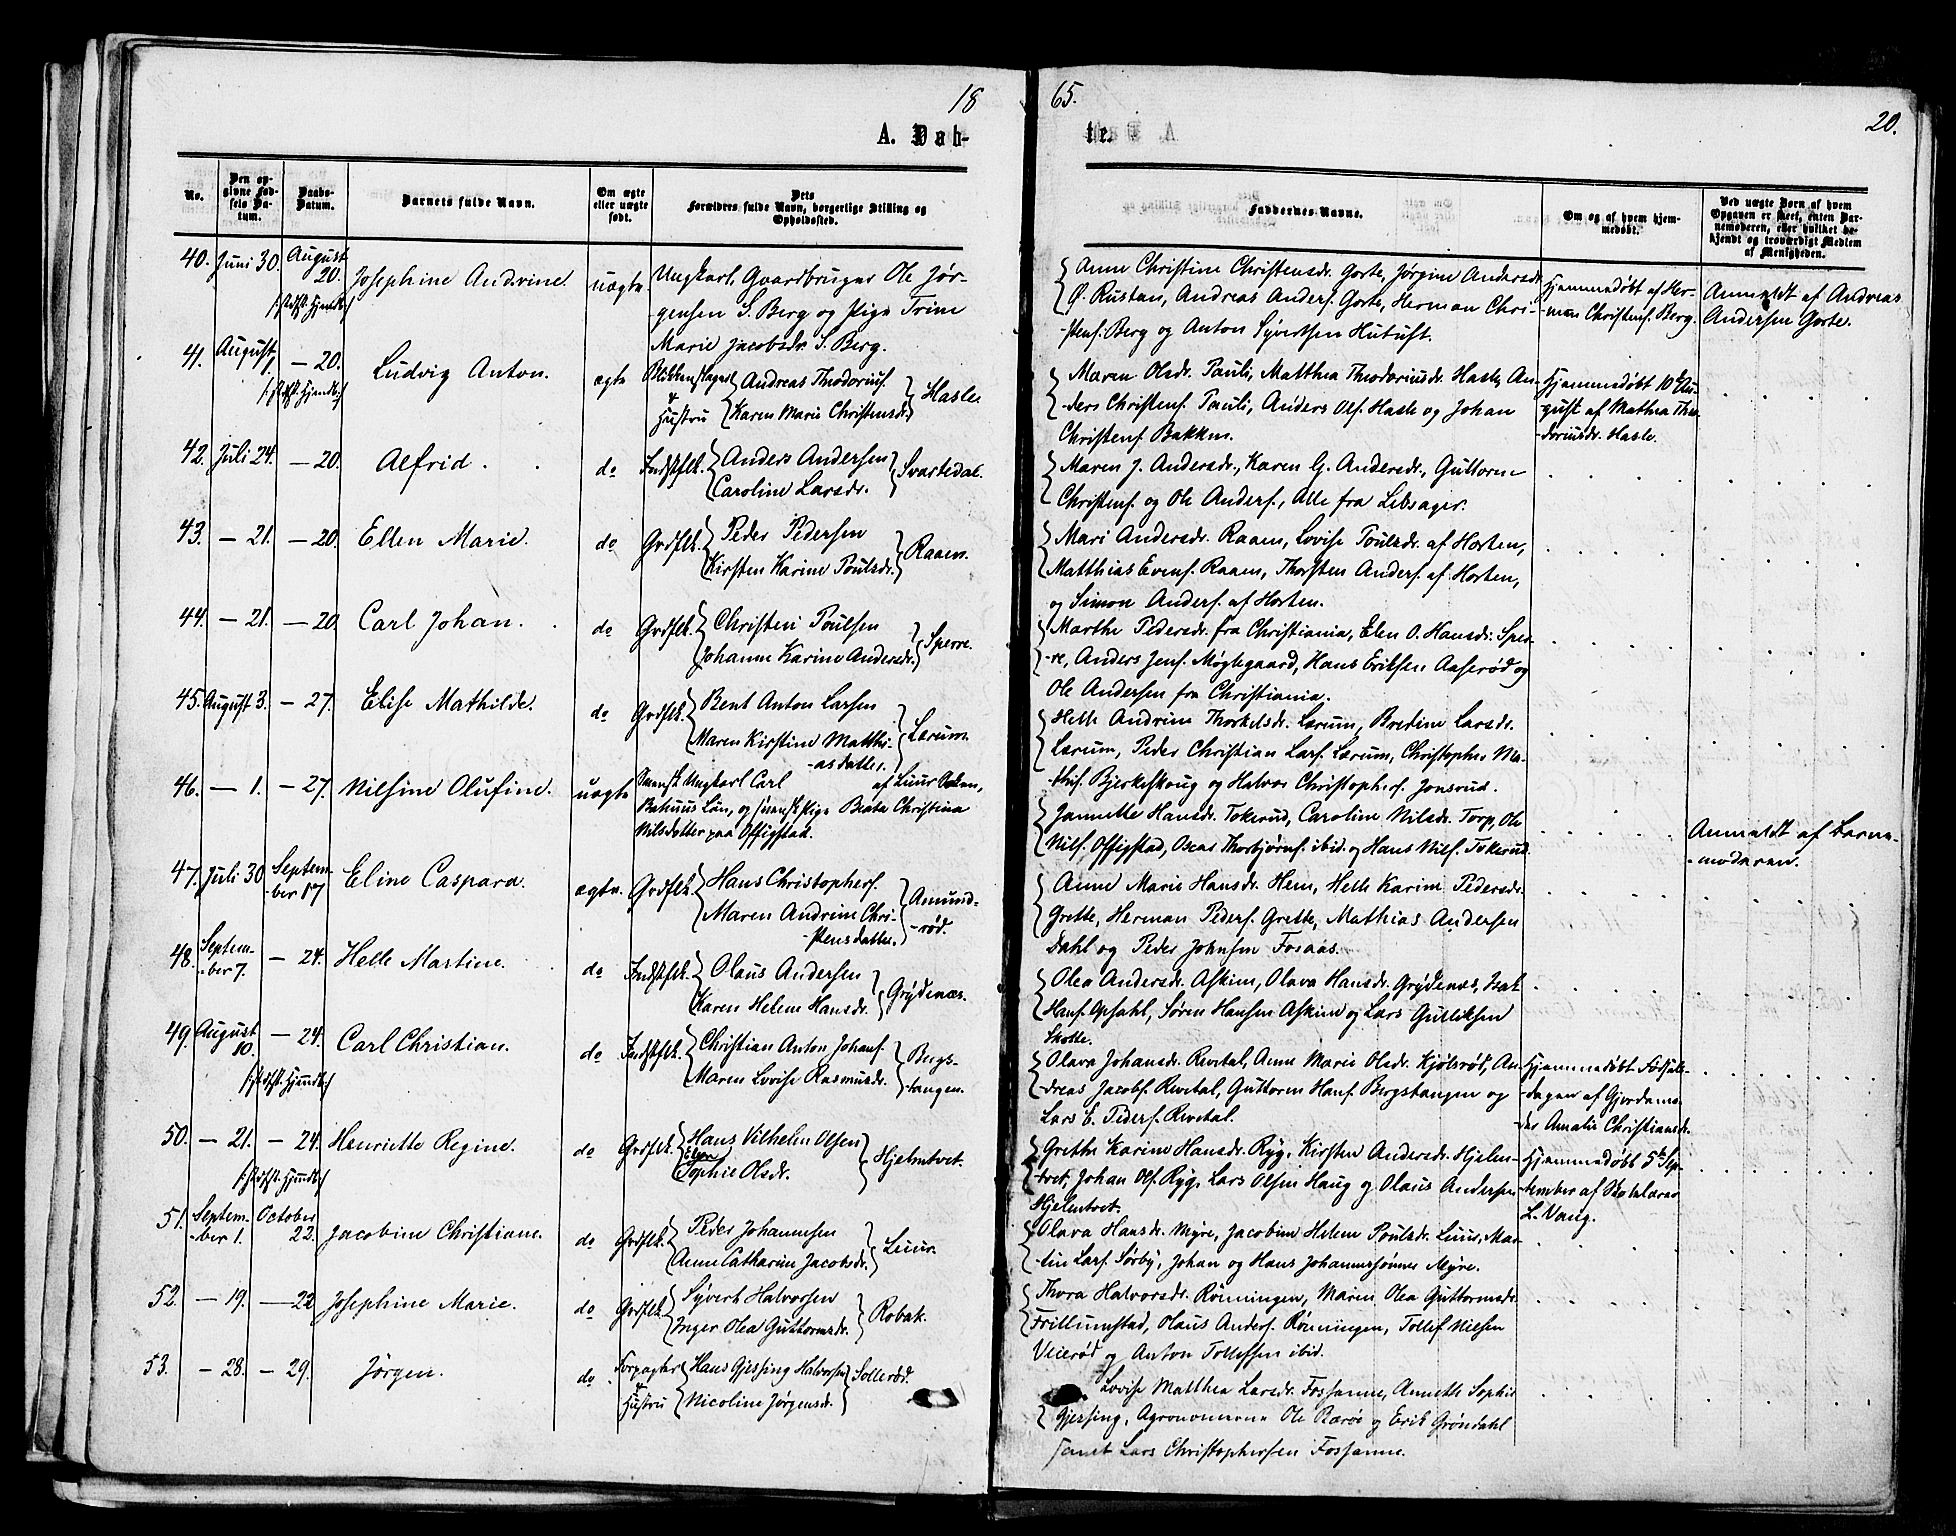 18
65.
20.
A. Døb-
te.
No.
Den op-
givne Fød-
sels Da-
tum.
Daabs-
Datum.
Barnets fulde Navn.
Om ægte
eller uægte
født.
Dets
Forældres fulde Navn, borgerlige Stilling og
Opholdssted.
Faddernes Navne.
Om og af hvem hjem-
medøbt.
Ved uægte Børn af hvem
Opgaven er skeet, enten Bar-
nemoderen, eller hvilket be-
kjendt og troværdigt Medlem
af Menigheden.
40. Juni 30. August 20. Josephine Andrine. uægte Ungkarl, Gaardbruger Ole Jør-
gensen S. Berg og Pige Trine
Marie Jacobsdr. S. Berg.
Anne Christine Christensdr. Gorte, Jørgine Andersdr.
Ø. Rustan, Andreas Anders. Gorte, Herman Chri-
stens. Berg og Anton Syvertsen Hutust.
Hjemmedøbt af Her-
man Christens. Berg.
Anmeldt af Andreas
Andersen Gorte.
41. August 1. — 20. Ludvig Anton. ægte Blikkenslager Andreas Thodorius.
& Hustru Karen Marie Christensdr. Hasle
Maren Olsdr. Pauli, Matthea Theodoriusdr. Hasle, An-
ders Christens. Pauli, Anders Ols. Hasle og Johan
Christens. Bakken.
Hjemmedøbt 10d Au-
gust af Mathea Theo-
doriusdr. Hasle.
42. Juli 24. — 20. Alfrid. do Indstflk. Anders Andersen
Caroline Larsdr. Svartedal.
Maren J. Andersdr., Karen G. Andersdr., Guttorm
Christens. og Ole Anders., Alle fra Libsager.
43. — 21. — 20. Ellen Marie. do Grdflk. Peder Pedersen
Kirsten Karine Poulsdr. Raaen.
Mari Andersdr. Raaen, Lovise Poulsdr. af Horten,
Matthias Evens. Raaen, Thorsten Anders. af Horten,
og Simon Anders. af Horten.
44. — 21. — 20 Carl Johan. do Grdflk. Christen Poulsen
Johanne Karine Andersdr. Sperre.
Marthe Pedersdr. fra Christiania, Elen O. Hansdr. Sper-
re, Anders Jens. Møglegaard, Hans Eriksen Aaserød og
Ole Andersen fra Christiania.
45. August 3. — 27. Elise Mathilde. do Grdflk. Bent Anton Larsen
Maren Kirstine Matthi-
asdatter. Lærum.
Helle Andrine Thorkelsdr. Lærum, Bredine Larsdr.
Lærum, Peder Christian Lars. Lærum, Christopher Ma-
this. Bjerkeskoug og Halvor Christophers. Jonsrud.
46. — 1. — 27. Nilsine Olufine. uægte Svensk Ungkarl Carl af Luur Socken,
Bahuus Län, og svensk Pige Beata Christina
Nilsdotter paa Offigstad.
Jannette Hansdr. Tokerud, Caroline Nilsdr. Torp, Ole
Nils. Offigstad, Oscar Thorbjørns. ibid. og Hans Nils. Tokerud.
Anmeldt af Barne-
moderen.
47. Juli 30 Septem-
ber 17 Eline Caspara. ægte. Grdflk. Hans Christophers.
Maren Andrine Chri-
stensdatter. Amund-
rød.
Anne Marie Hansdr. Hem, Helle Karine Pedersdr.
Grette, Herman Peders. Grette, Mathias Andersen
Dahl og Peder Johnsen Fosaas.
48. Septem-
ber 7. — 24. Helle Martine. do Indstflk. Olaus Andersen
Karen Helene Hansdr. Grydenæs.
Olea Andersdr. Askim, Olava Hansdr. Grydenæs, Isak
Hans. Opsahl, Søren Hansen Askim og Lars Gulliksen
Skotte.
49. August
10. — 24. Carl Christian. do Indstflk. Christian Anton Johans.
Maren Lovise Rasmusdr. Bergs-
tangen.
Olava Johansdr. Revetal, Anne Marie Olsdr. Kjølsrød, An-
dreas Jacobs. Revetal, Guttorm Hans. Bergstangen og
Lars E. Peders. Revetal.
Hjemmedøbt Fødsels-
dagen af Gjordemo-
der Amalie Christiansdr.
50. — 21. — 24. Henriette Regine. do Grdflk. Hans Vilhelm Olsen
Elen
Sophie Olsdr. Hjelmtvet.
Grethe Karine Hansdr. Ryg, Kirsten Andersdr. Hjelm-
tvet, Johan Ols. Ryg, Lars Olsen Haug og Olaus Andersen
Hjelmtvet.
Hjemmedøbt 5te Sep-
tember af Skolelærer
L. Vang.
51. Septem-
ber 1. October
22. Jacobine Christiane. do Grdflk. Peder Johannesen
Anne Cathrine Jacobsdr. Linur.
Olava Hansdr. Myre, Jacobine Helene Poulsdr. Linur, Mar-
tin Lars. Sørby, Johan og Hans Johannessønner Myre.
52. — 19. — 22 Josephine Marie. do Grdflk. Syvert Halvorsen
Inger Olea Guttormsdr. Robak.
Thora Halvorsdr. Rønningen, Maren Olea Guttormsdr.
Frillumstad, Olaus Anders. Rønningen, Tollef Nilsen
Vierød og Anton Tollefsen ibid.
53. — 28. — 29. Jørgen. do Forpagter Hans Gjessing Halvorsen
& Hustru Nicoline Jørgensdr. Sollerød.
Lovise Matthea Larsdr. Fossanne, Annette Sophie
Gjessing, Agronomerne Ole Rærøe og Erik Grøndahl
samt Lars Christophersen Fossanne.